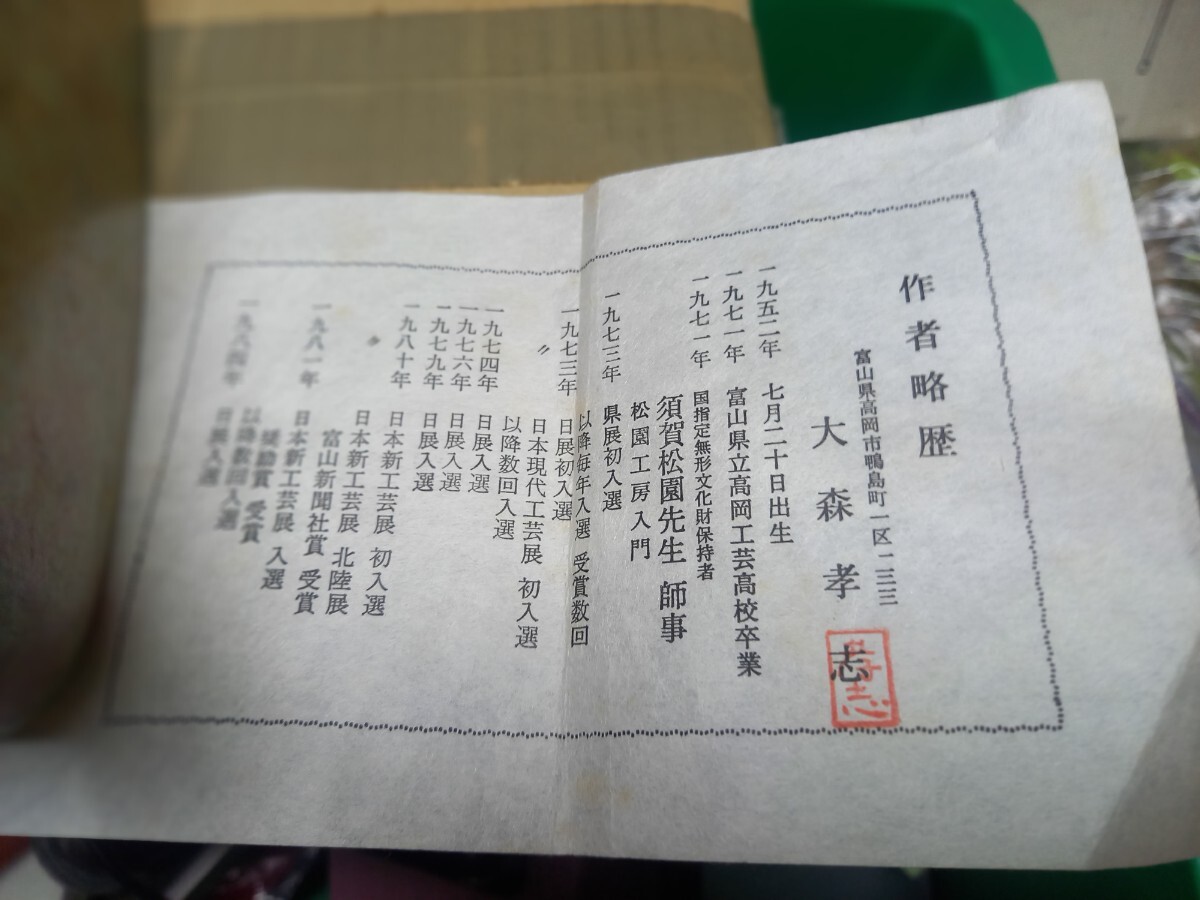 作者略歴
富山県高岡市鴨島町一区一三三
大森孝志
孝志
一九五二年 七月二十日出生
一九七一年 富山県立高岡工芸高校卒業
一九七一年 国指定無形文化財保持者
須賀松園先生 師事
松園工房入門
一九七三年 県展初入選
以降毎年入選 受賞数回
一九七三年 日展初入選
〃 日本現代工芸展 初入選
以降数回入選
一九七四年 日展入選
一九七六年 日展入選
一九七九年 日展入選
一九八十年 日本新工芸展 初入選
〃 日本新工芸展 北陸展
富山新聞社賞 受賞
一九八一年 日本新工芸展 入選
奨励賞 受賞
以降数回入選
一九八四年 日展入選